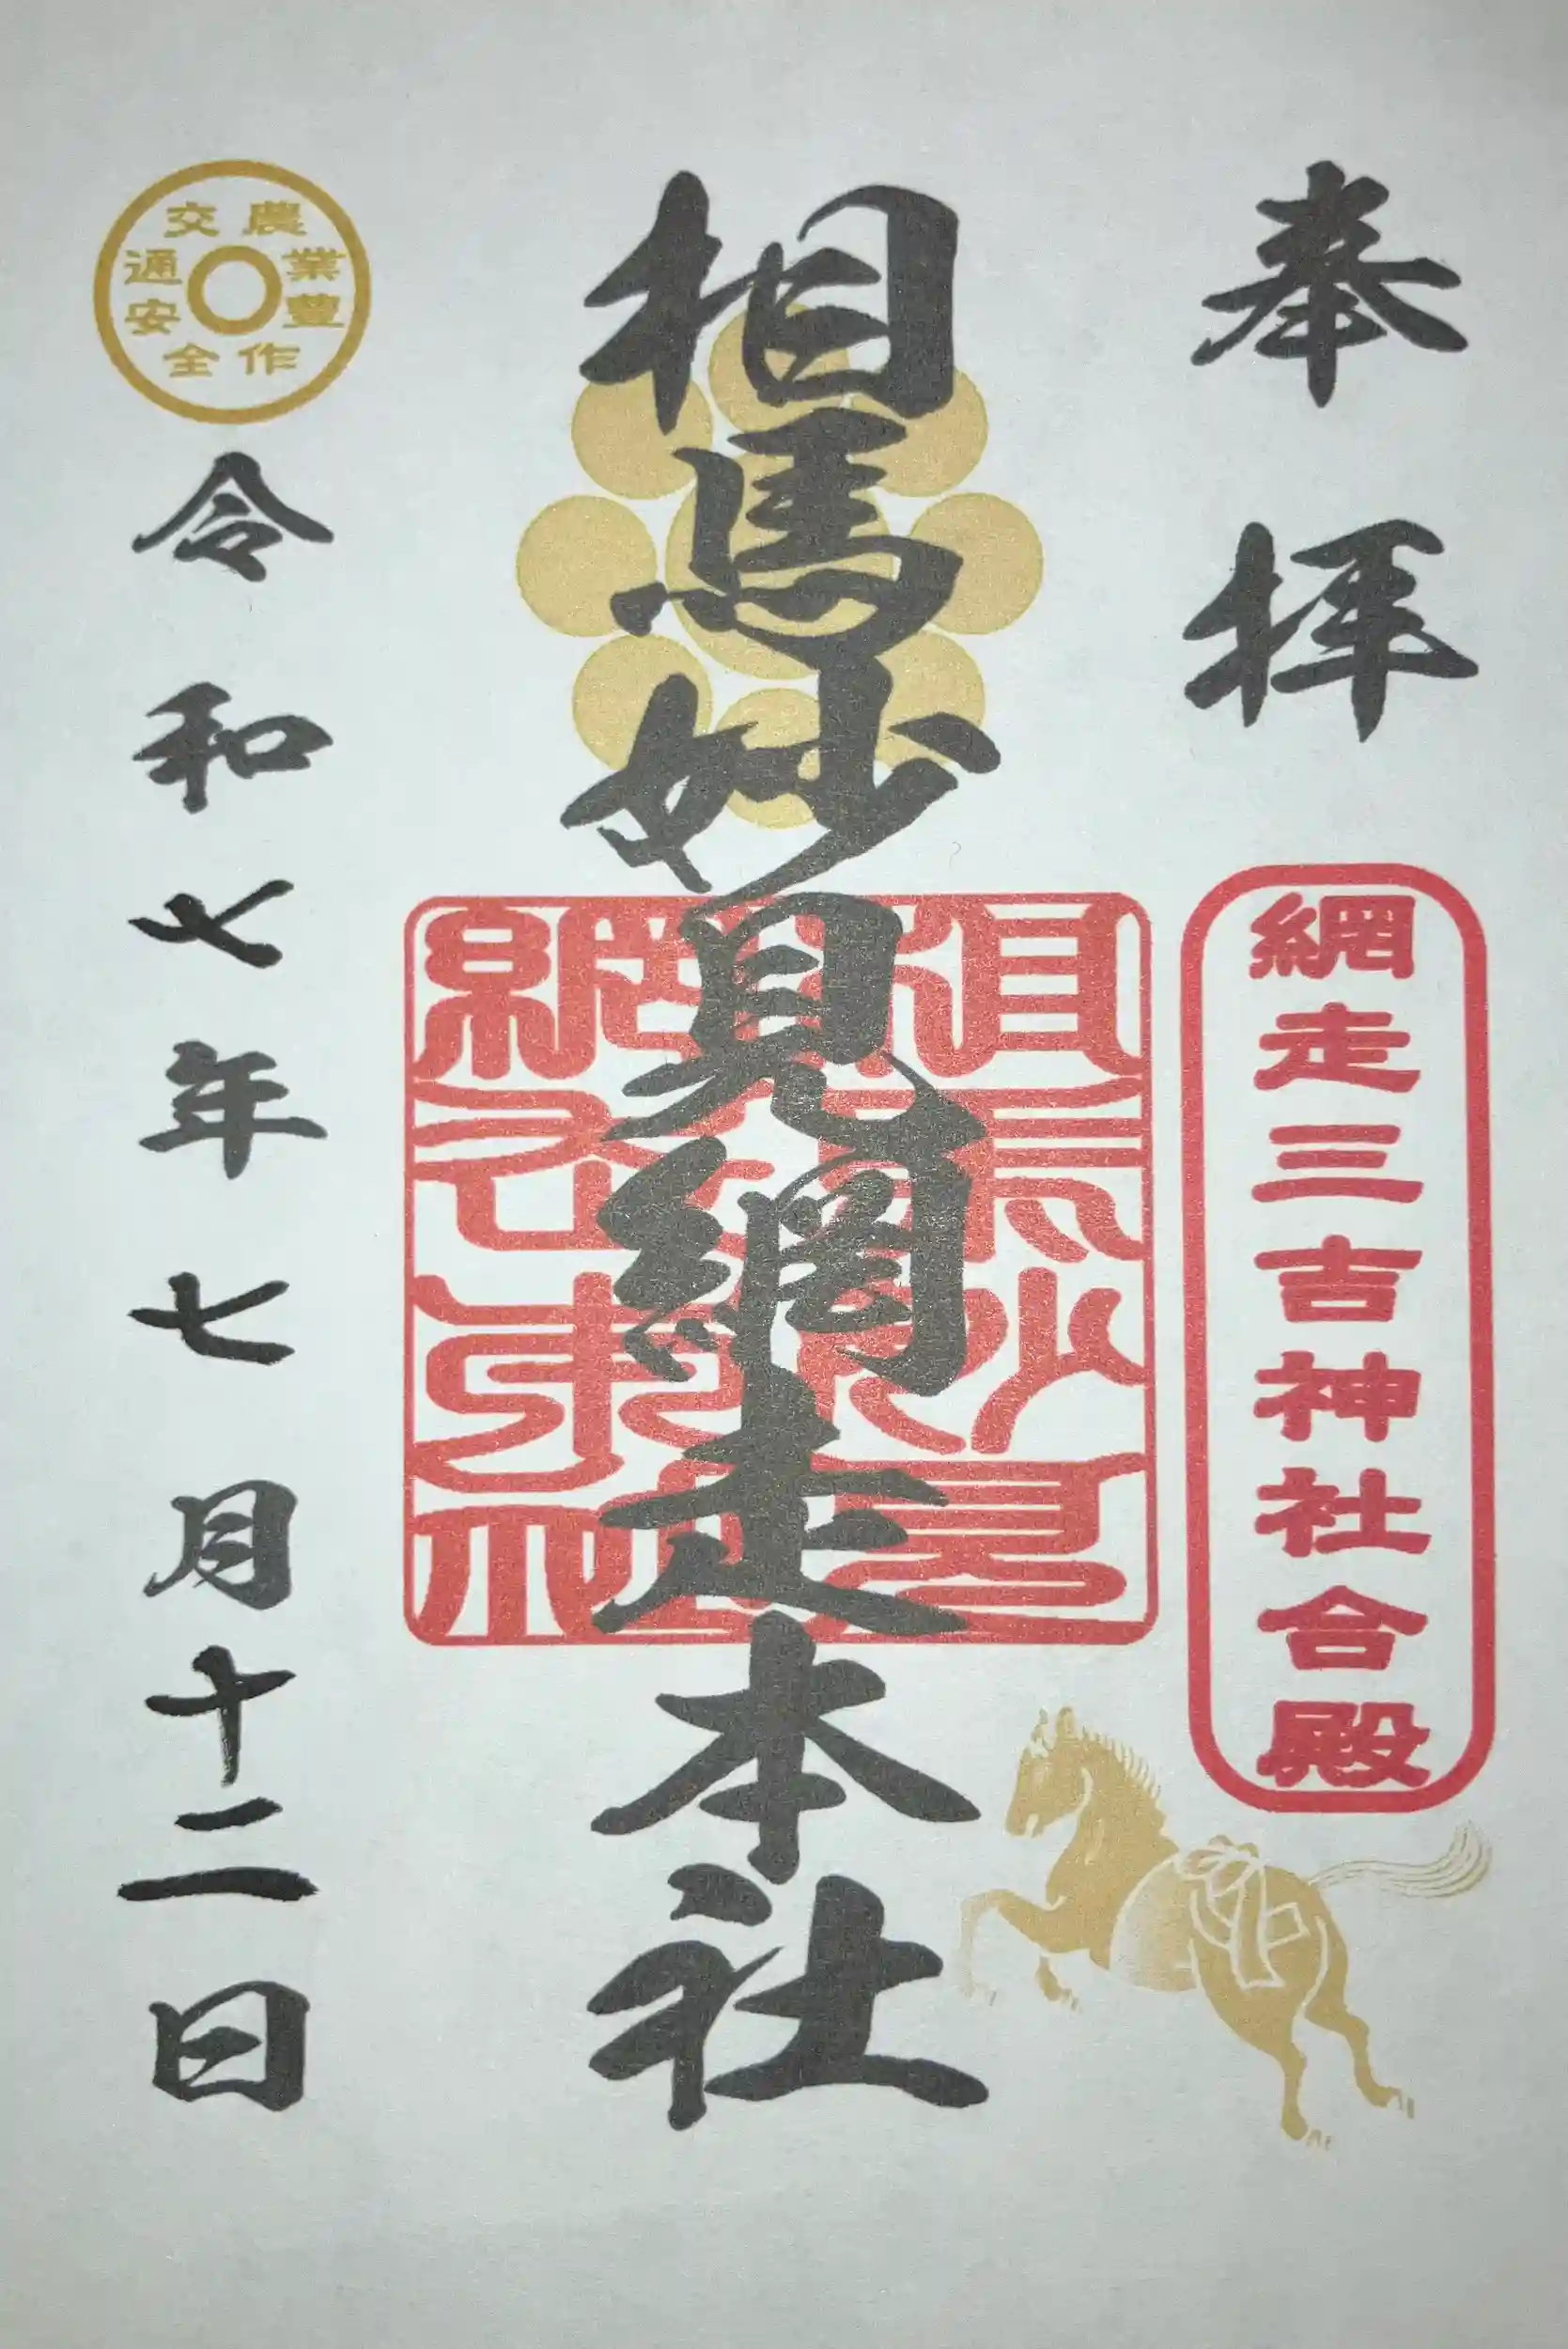 奉拝
網走三吉神社合殿
相馬妙見網走本社
農業豊作
交通安全
令和七年七月十二日